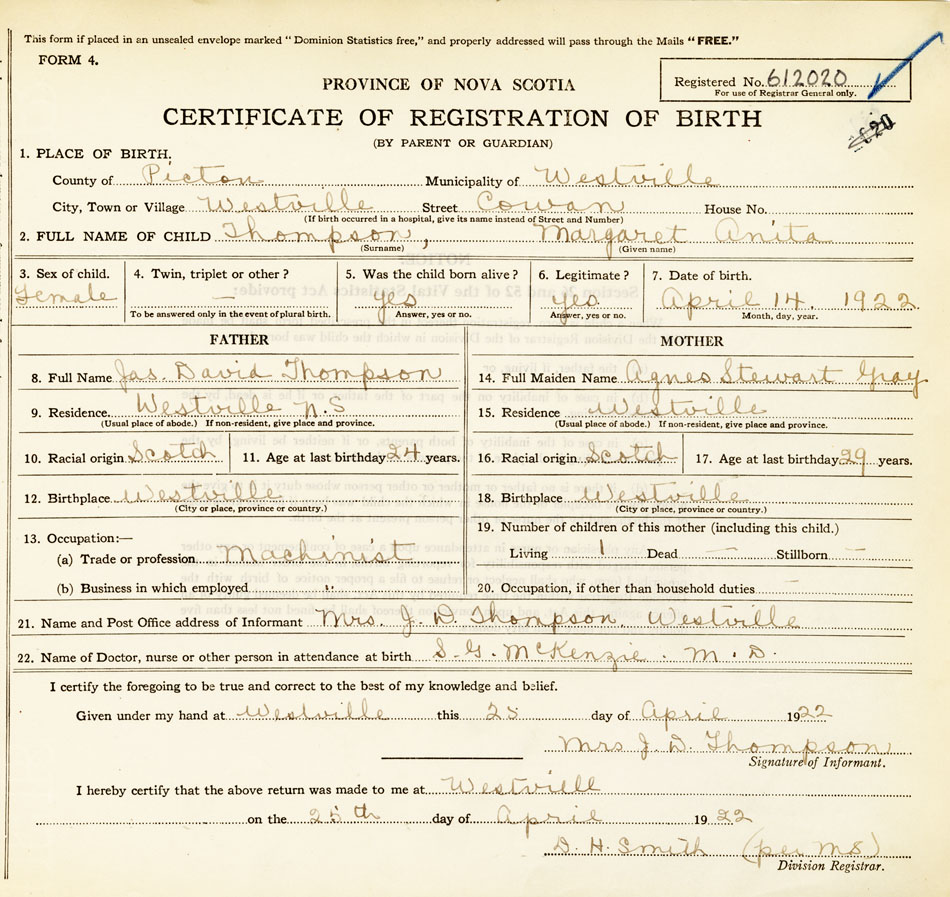 This form if placed in an unsealed envelope marked "Dominion Statistics free," and properly addressed will pass through the Mails "FREE."
FORM 4.
PROVINCE OF NOVA SCOTIA
Registered No. 612020
For use of Registrar General only.
CERTIFICATE OF REGISTRATION OF BIRTH
(BY PARENT OR GUARDIAN)
1. PLACE OF BIRTH.
County of Pictou Municipality of Westville
City, Town or Village Westville Street Cowan House No.
(If birth occurred in a hospital, give its name instead of Street and Number)
2. FULL NAME OF CHILD Thompson, Margaret Anita
(Surname) (Given name)
3. Sex of child. 4. Twin, triplet or other? 5. Was the child born alive? 6. Legitimate? 7. Date of birth.
Female — yes yes April 14, 1922
To be answered only in the event of plural birth. Answer, yes or no. Answer, yes or no. Month, day, year.
FATHER MOTHER
8. Full Name Jas. David Thompson 14. Full Maiden Name Agnes Stewart Gray
9. Residence. Westville N.S 15. Residence Westville
(Usual place of abode.) If non-resident, give place and province. (Usual place of abode.) If non-resident, give place and province.
10. Racial origin Scotch 11. Age at last birthday 24 years. 16. Racial origin Scotch 17. Age at last birthday 29 years.
12. Birthplace Westville 18. Birthplace Westville
(City or place, province or country.) (City or place, province or country.)
13. Occupation:— 19. Number of children of this mother (including this child.)
(a) Trade or profession Machinist Living 1 Dead — Stillborn —
(b) Business in which employed " 20. Occupation, if other than household duties —
21. Name and Post Office address of Informant Mrs. J. D. Thompson Westville
22. Name of Doctor, nurse or other person in attendance at birth S. G. McKenzie. M. D.
I certify the foregoing to be true and correct to the best of my knowledge and belief.
Given under my hand at Westville this 25 day of April 1922
Mrs J. D. Thompson
Signature of Informant.
I hereby certify that the above return was made to me at Westvill
on the 25th day of April 1922
D. H. Smith (per MS)
Division Registrar.